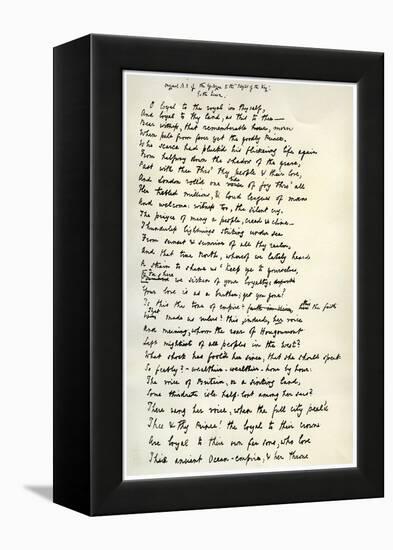 Original M.S. of the Epilogue to the "Idylls of the King".
To the Queen.
O loyal to the royal in thyself,
And loyal to thy land, as this to thee—
Bear witness, that rememberable hour, morn
When pale from fever yet the goodly Prince,
Who scarce had pluck'd his flickering life again
From halfway down the shadow of the grave,
Past with thee thro' thy people & their love,
And London roll'd one voice of joy thro' all
Her trebled millions, & loud leagues of man
And welcome: witness too, the silent cry,
The prayer of many a people, creed & clime—
Thunderless lightnings striking under sea
From sunset & sunrise of all thy realm,
And that true north, whereof we lately heard
A strain to shame us 'keep ye to yourselves,
So loyal we sicken of your loyalty,
Your love is as a burthen: get you gone!'
Is this the tone of empire? here the faith
That made us rulers? this, indeed, her voice
And meaning, whom the roar of Hougoumont
Left mightiest of all peoples in the west?
What shock has fool'd her since, that she should speak
So feebly?—wealthier—wealthier—hour by hour:
The voice of Britain, or a sinking land,
Some third-rate isle half-lost among her seas?
There rang her voice, when the full city peal'd
Thee & thy Prince! the loyal to their crown
Are loyal to their own far sons, who love
This ancient Ocean-empire, & her throne